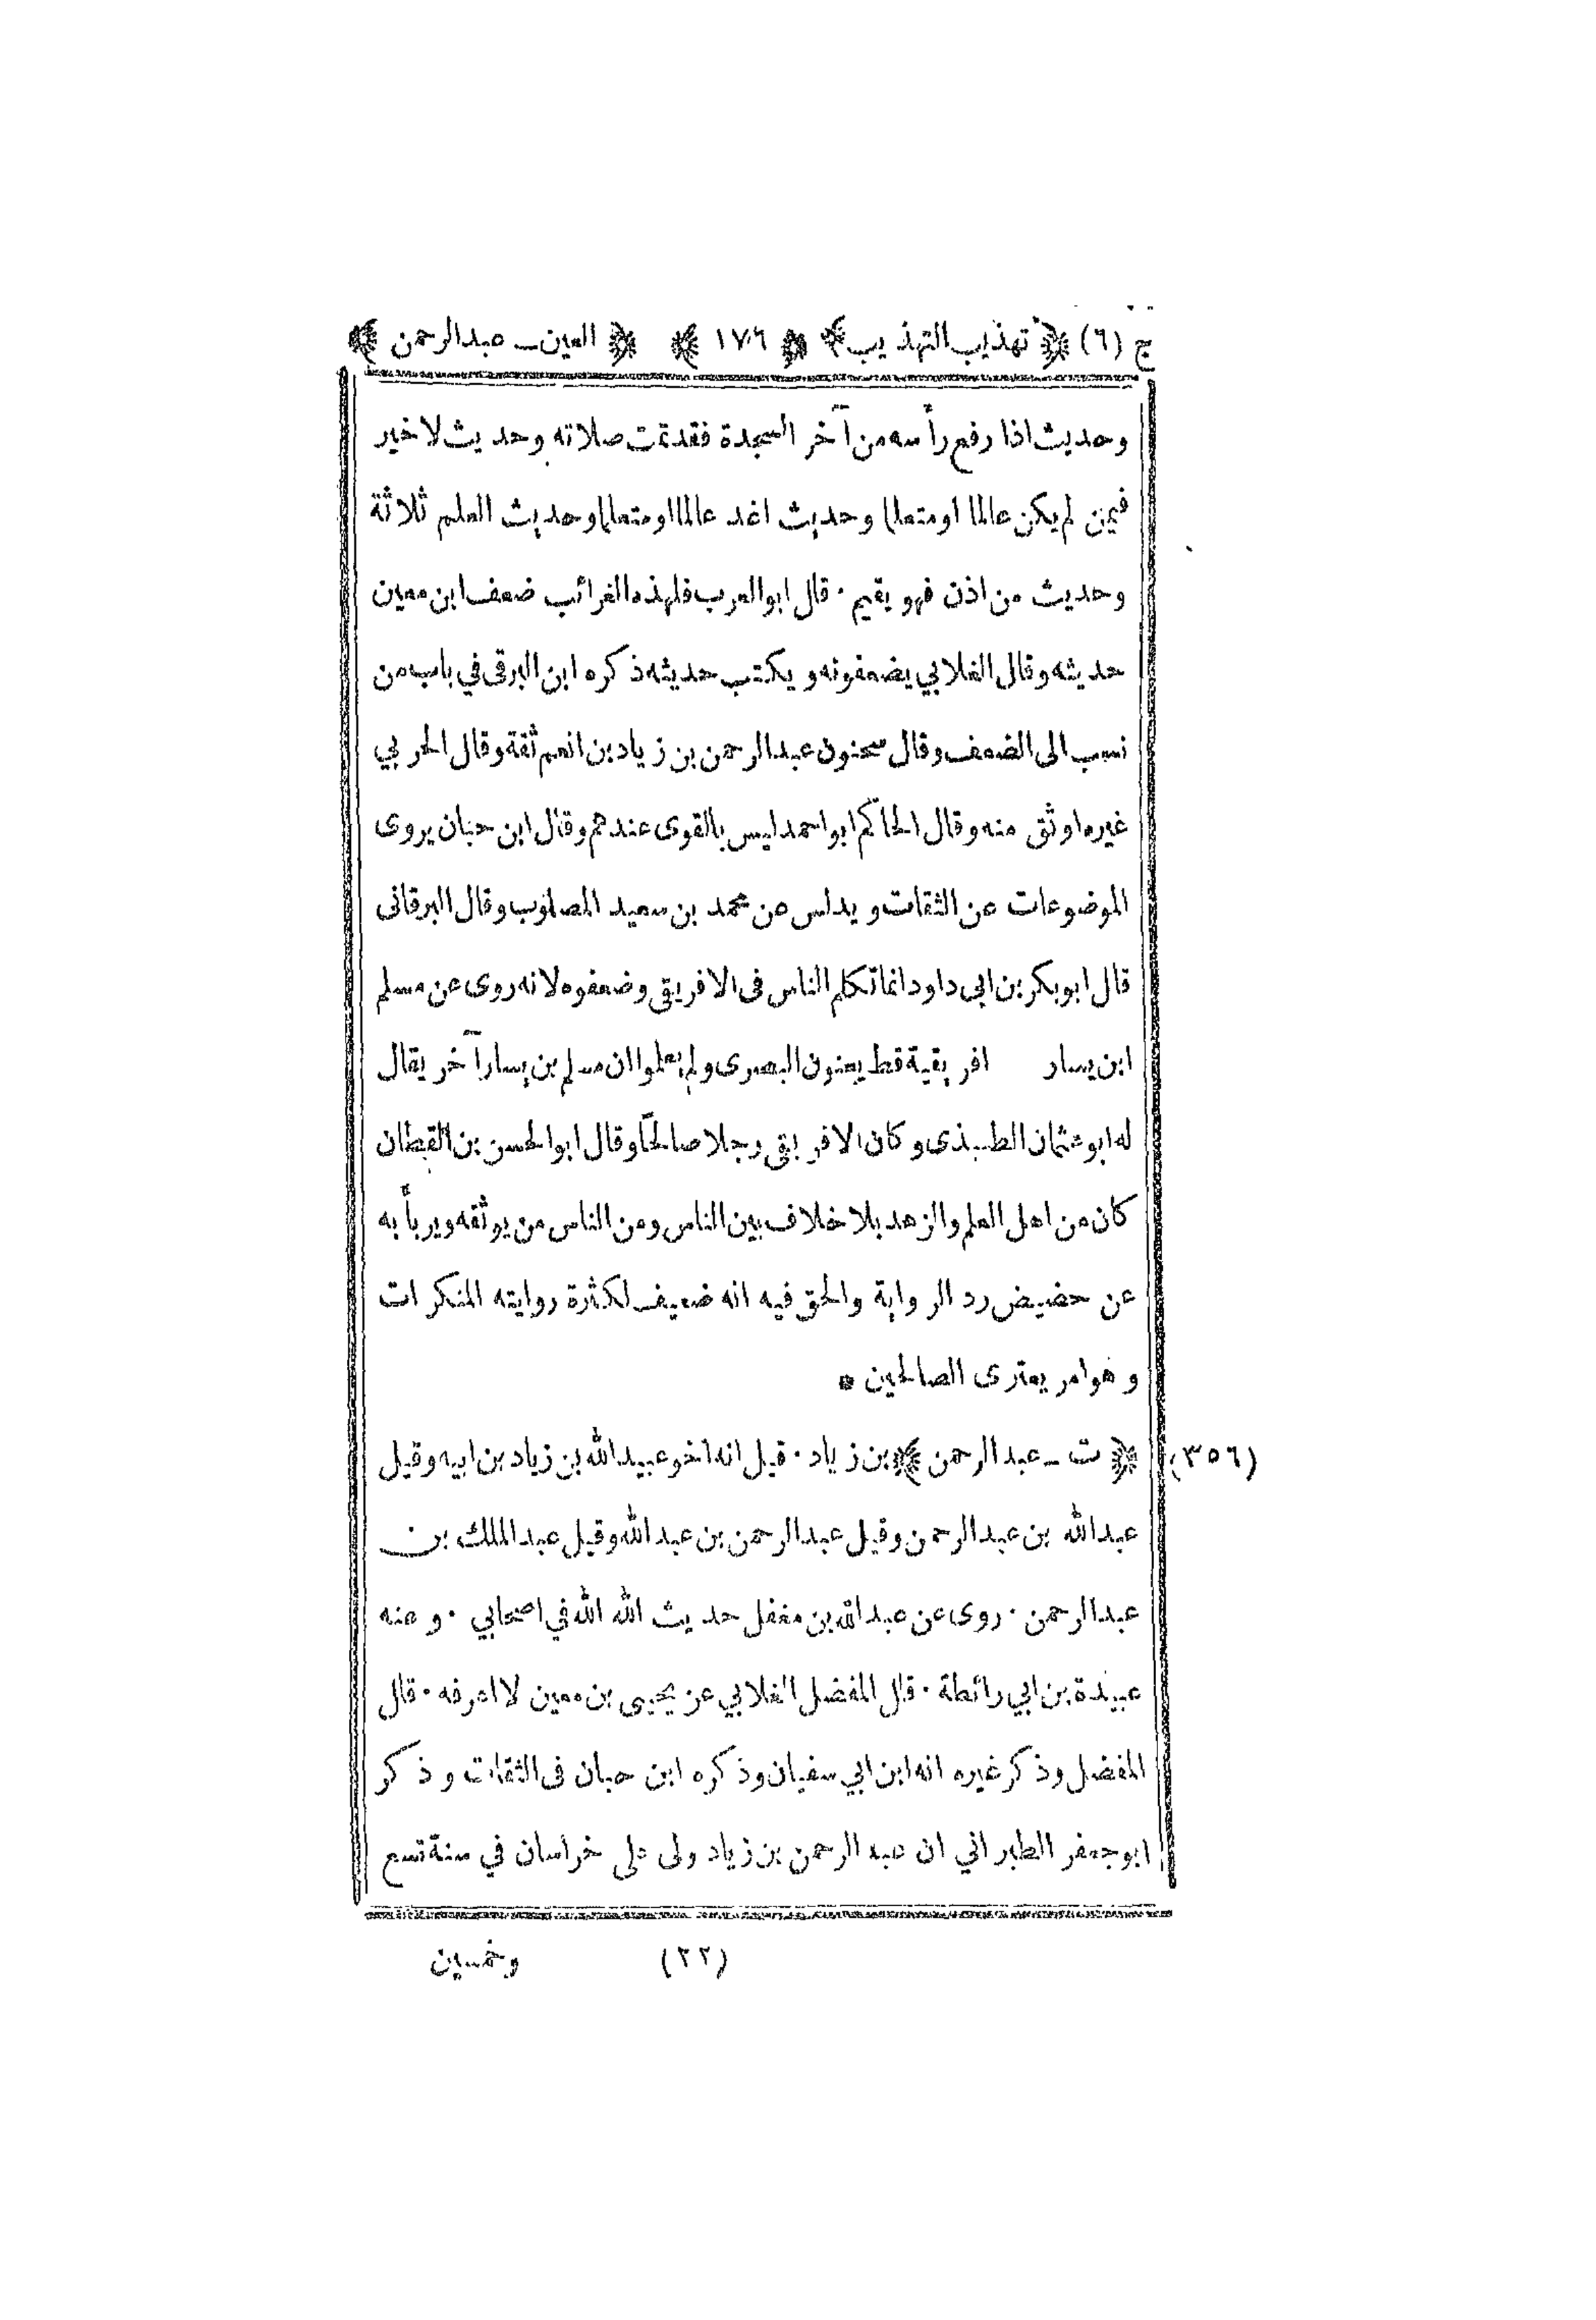 ج (٦) ﴿ تهذيب التهذيب ﴾ ١٧٦ ﴿ العين ـ عبد الرحمن ﴾
وحديث اذا رفع رأسه من آخر السجدة فقد تمت صلاته وحديث لا خير
فيمن لم يكن عالما او متعلما وحديث اغد عالما او متعلما وحديث العلم ثلاثة
وحديث من اذن فهو يقيم · قال ابو العرب فلهذه الغرائب ضعف ابن معين
حديثه وقال الغلابي يضعفونه ويكتب حديثه ذكره ابن البرقى في باب من
نسب الى الضعف وقال سحنون عبد الرحمن بن زياد بن انعم ثقة وقال الحربي
غيره اوثق منه وقال الحاكم ابو احمد ليس بالقوى عندهم وقال ابن حبان يروى
الموضوعات عن الثقات ويدلس عن محمد بن سعيد المصلوب وقال البرقانى
قال ابو بكر بن ابى داود انما تكلم الناس فى الافريقي وضعفوه لانه روى عن مسلم
ابن يسار افريقية قط يعنون البصرى ولم يعلموا ان مسلم بن يسار آخر يقال
له ابو عثمان الطنبذى وكان الافريقي رجلا صالحا وقال ابو الحسن بن القطان
كان من اهل العلم والزهد بلا خلاف بين الناس ومن الناس من يوثقه ويربأ به
عن حضيض رد الرواية والحق فيه انه ضعيف لكثرة روايته المنكرات
وهو امر يعترى الصالحين *
(٣٥٦) ﴿ ت ـ عبد الرحمن ﴾ بن زياد · قيل انه اخو عبيد الله بن زياد بن ابيه وقيل
عبد الله بن عبد الرحمن وقيل عبد الرحمن بن عبد الله وقيل عبد الملك بن
عبد الرحمن · روى عن عبد الله بن مغفل حديث الله الله في اصحابي · وعنه
عبيدة بن ابي رائطة · قال المفضل الغلابي عن يحيى بن معين لا اعرفه · قال
المفضل وذكر غيره انه ابن ابي سفيان وذكره ابن حبان فى الثقات وذكر
ابو جعفر الطبراني ان عبد الرحمن بن زياد ولى على خراسان في سنة تسع
(٢٢) وخمسين